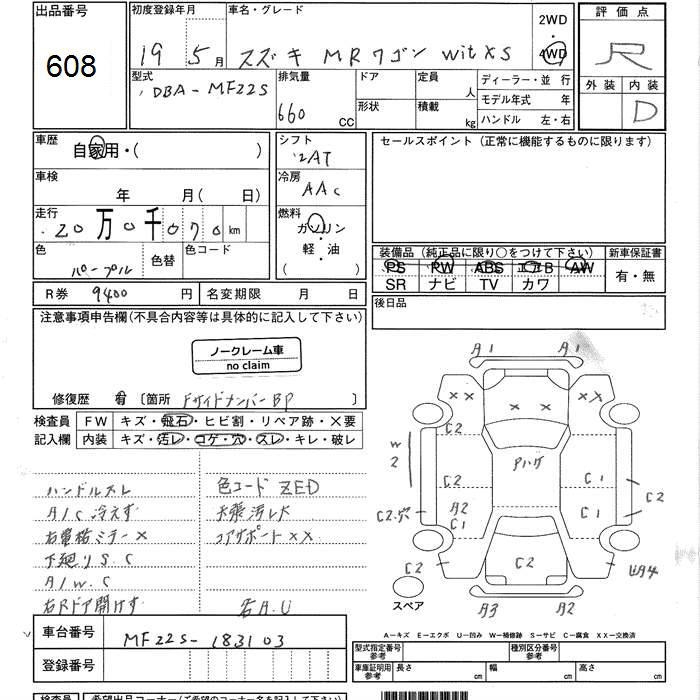 出品番号
608
初度登録年月
19 5月
車名・グレード
スズキ MRワゴン wit XS
2WD
4WD
評価点
R
外装 内装
D
型式
DBA-MF22S
排気量
660 CC
ドア
形状
定員 人
積載 kg
ディーラー・並行
モデル年式 年
ハンドル 左・右
車歴
自家用・( )
シフト
2AT
セールスポイント (正常に機能するものに限ります)
車検
年 月( 日)
冷房
AAC
走行
20万0千070km
燃料
ガソリン
・
軽・油
( )
色
パープル
色替
色コード
装備品 (純正品に限り○をつけて下さい)
新車保証書
PS PW ABS エアB AW
SR ナビ TV カワ
有・無
R券 9400円
名変期限 月 日
後日品
注意事項申告欄(不具合内容等は具体的に記入して下さい)
ノークレーム車
no claim
修復歴 有 〔箇所 FサイドメンバーBP
検査員 FW キズ・飛石・ヒビ割・リペア跡・×要
記入欄 内装 キズ・汚レ・コゲ・穴・スレ・キレ・破レ
ハンドルスレ
色コード ZED
A/C冷えず
天張汚レ大
右電格ミラー×
コアサポートXX
下廻りS.C
A/W.C
右Rドア開けず
右A.U
A1 A1
×× ×× ××
C2 C2
W2
Pハゲ
C2 C1 C2
C2穴 A2 C1 C1
C2 C2
A3 A2
スペア
A-キズ E-エクボ U-凹み W-補修跡 S-サビ C-腐食 XX-交換済
車台番号
MF22S-183103
登録番号
型式指定番号
参考
種別区分番号
参考
車庫証明用
参考
長さ cm 幅 cm 高さ cm
検査員 希望出品コーナー(ご希望のコーナー名をご記入下さい)